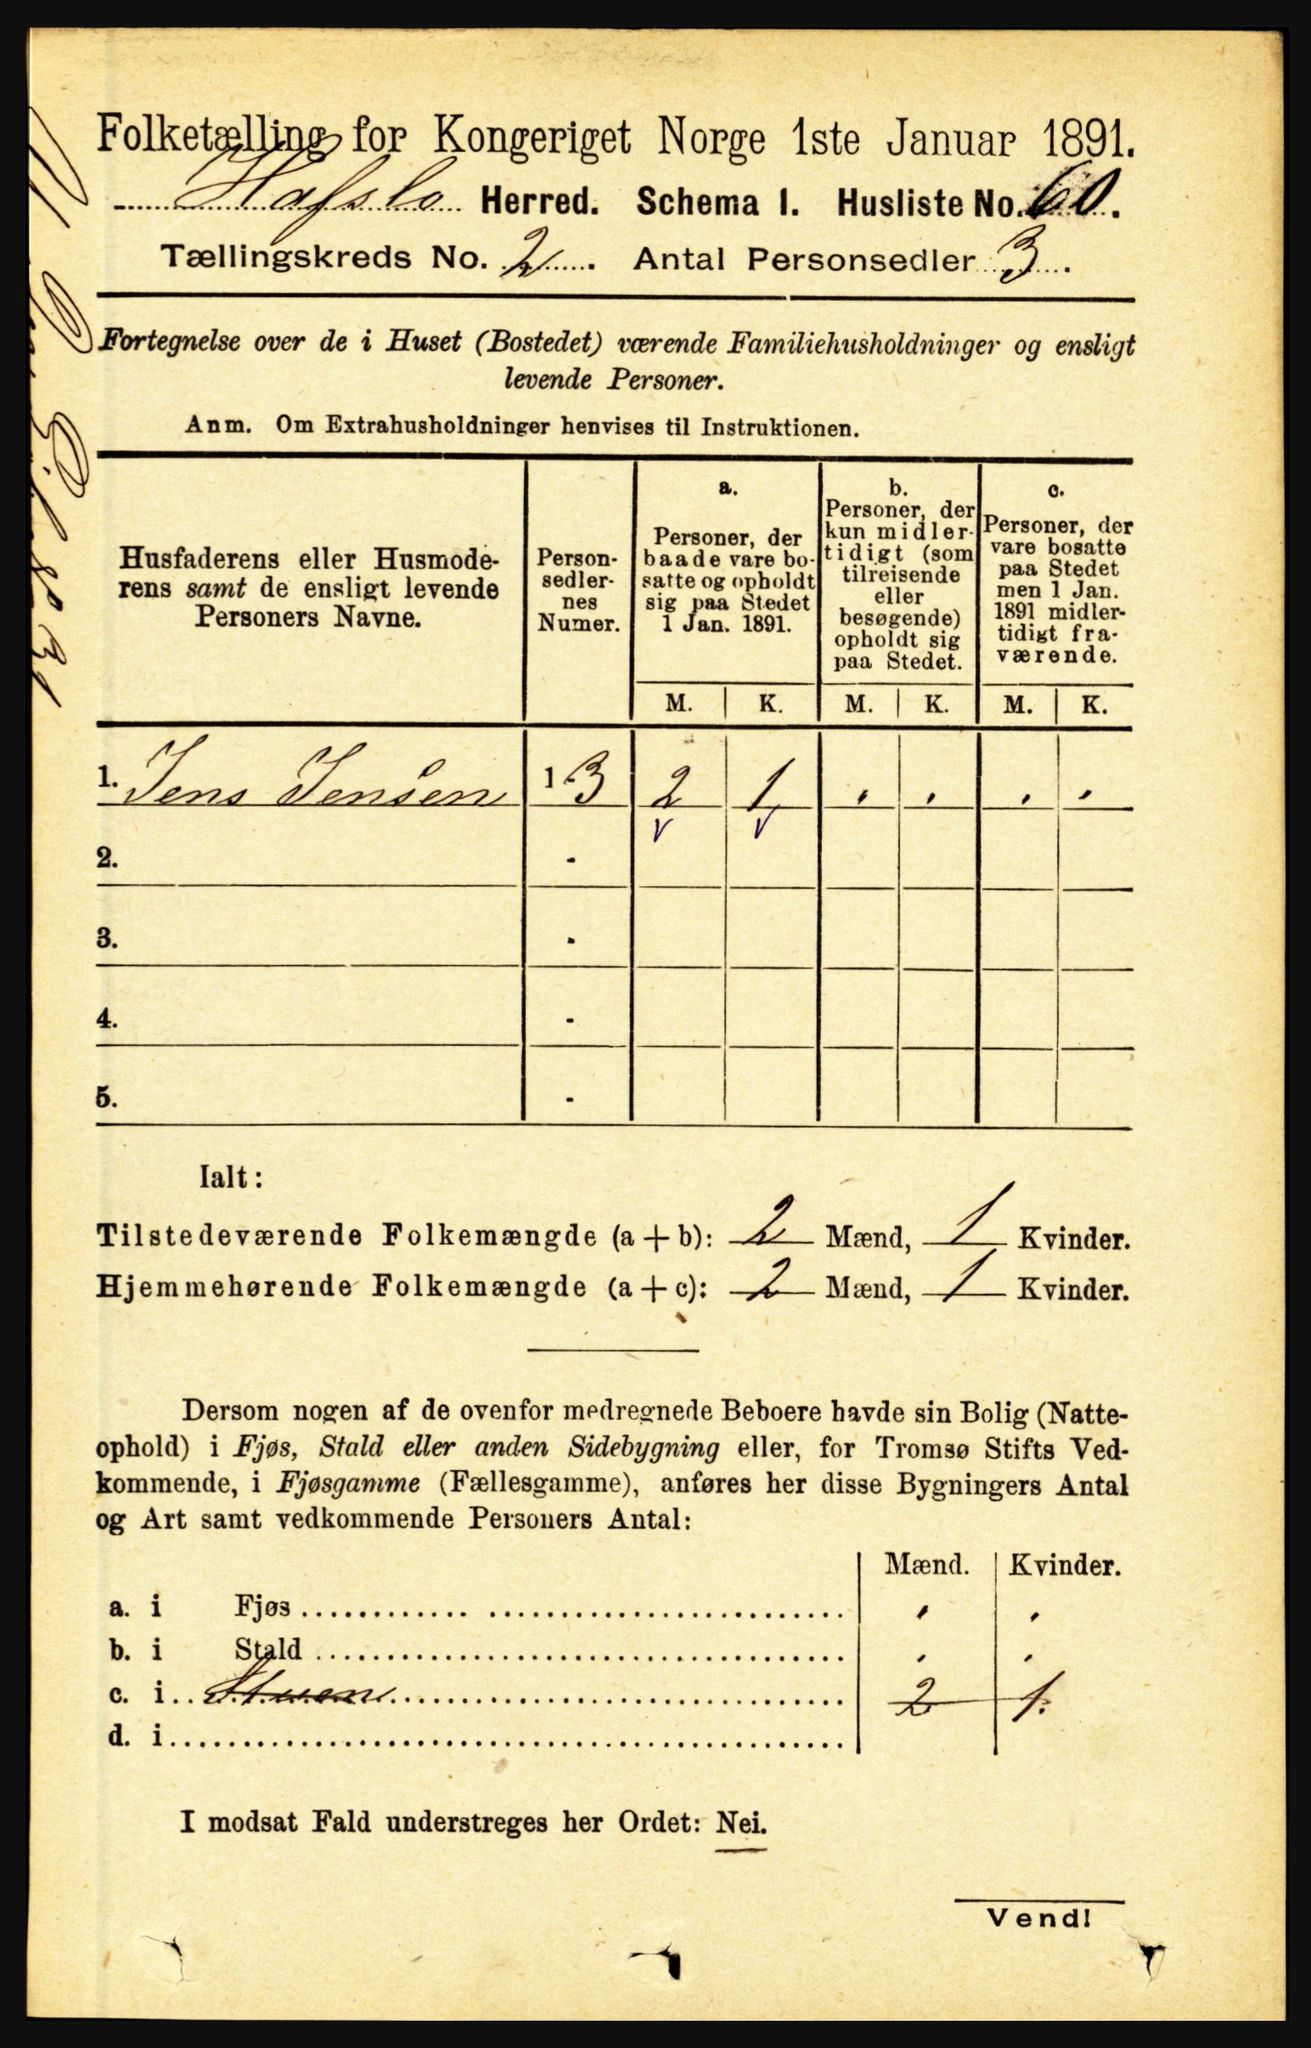 Folketælling for Kongeriget Norge 1ste Januar 1891.
Hafslo Herred. Schema 1. Husliste No. 60.
Tællingskreds No. 2. Antal Personsedler 3.
Fortegnelse over de i Huset (Bostedet) værende Familiehusholdninger og ensligt
levende Personer.
Anm. Om Extrahusholdninger henvises til Instruktionen.
Husfaderens eller Husmode-
rens samt de ensligt levende
Personers Navne.
Person-
sedler-
nes
Numer.
a.
Personer, der
baade vare bo-
satte og opholdt
sig paa Stedet
1 Jan. 1891.
b.
Personer, der
kun midler-
tidigt (som
tilreisende
eller
besøgende)
opholdt sig
paa Stedet.
c.
Personer, der
vare bosatte
paa Stedet
men 1 Jan.
1891 midler-
tidigt fra-
værende.
M. K. M. K. M. K.
1. Jens Jensen 1-3 2 1 . . . .
2. -
3. -
4. -
5. -
Ialt:
Tilstedeværende Folkemængde (a + b): 2 Mænd, 1 Kvinder.
Hjemmehørende Folkemængde (a + c): 2 Mænd, 1 Kvinder.
Dersom nogen af de ovenfor medregnede Beboere havde sin Bolig (Natte-
ophold) i Fjøs, Stald eller anden Sidebygning eller, for Tromsø Stifts Ved-
kommende, i Fjøsgamme (Fællesgamme), anføres her disse Bygningers Antal
og Art samt vedkommende Personers Antal:
Mænd. Kvinder.
a. i Fjøs . .
b. i Stald . .
c. i Stuen 2 1.
d. i
I modsat Fald understreges her Ordet: Nei.
Vend!